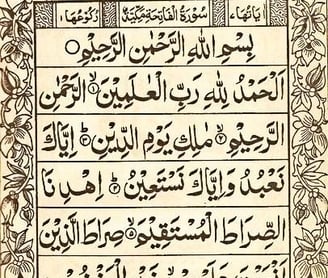 اٰيَاتُهَا، سُوْرَةُ الْفَاتِحَةِ مَكِّيَّةٌ رُكُوْعُهَا،
بِسْمِ اللّٰهِ الرَّحْمٰنِ الرَّحِيْمِ
اَلْحَمْدُ لِلّٰهِ رَبِّ الْعٰلَمِيْنَ ۙ۱ الرَّحْمٰنِ
الرَّحِيْمِ ۙ۲ مٰلِكِ يَوْمِ الدِّيْنِ ؕ۳ اِيَّاكَ
نَعْبُدُ وَاِيَّاكَ نَسْتَعِيْنُ ؕ۴ اِهْدِنَا
الصِّرَاطَ الْمُسْتَقِيْمَ ۙ۵ صِرَاطَ الَّذِيْنَ